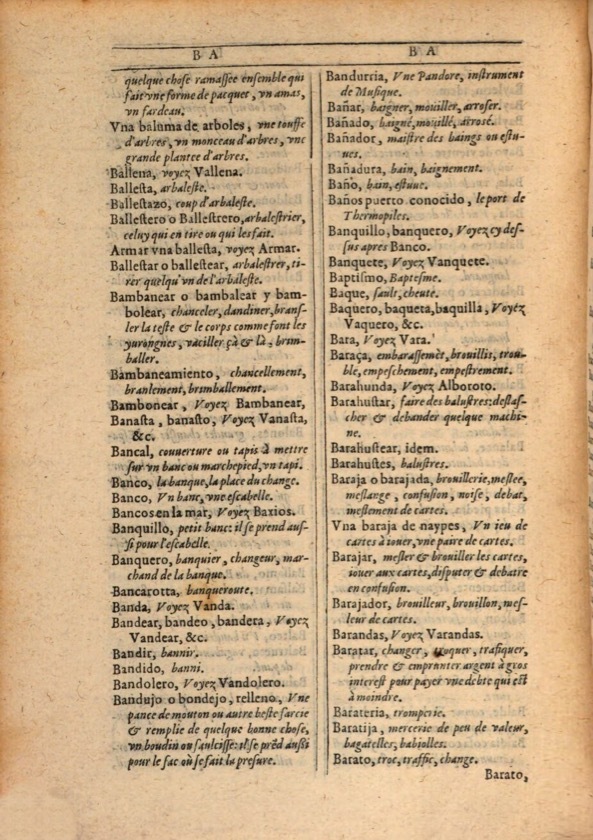 B A
quelque chose ramassee ensemble qui
fait vne forme de pacquet, vn amas,
vn fardeau.
Vna baluma de arboles, vne touffe
d'arbres, vn monceau d'arbres, vne
grande plantee d'arbres.
Ballena, voyez Vallena.
Ballesta, arbaleste.
Ballestazo, coup d'arbaleste.
Ballestero o Ballestrero, arbalestrier,
celuy qui en tire ou qui les fait.
Armar vna ballesta, voyez Armar.
Ballestar o ballestear, arbalestrer, ti-
rer quelqu'vn de l'arbaleste.
Bambanear o bambalear y bam-
bolear, chanceler, dandiner, bransf-
ler la teste & le corps comme font les
yurongnes, vaciller çà & là, brim-
baller.
Bambaneamiento, chancellement,
branlement, brimballement.
Bambonear, Voyez Bambanear,
Banasta, banasto, Voyez Vanasta,
&c.
Bancal, couuerture ou tapis à mettre
sur vn banc ou marchepied, vn tapi.
Banco, la banque, la place du change.
Banco, Vn banc, vne escabelle.
Bancos en la mar, Voyez Baxios.
Banquillo, petit banc: il se prend aus-
si pour l'escabelle.
Banquero, banquier, changeur, mar-
chand de la banque.
Bancarotta, banqueroute.
Banda, Voyez Vanda.
Bandear, bandeo, bandera, Voyez
Vandear, &c.
Bandir, bannir.
Bandido, banni.
Bandolero, Voyez Vandolero.
Bandujo o bondejo, relleno, Vne
pance de mouton ou autre beste farcie
& remplie de quelque bonne chose,
vn boudin ou saulcisse: il se prẽd aussi
pour le sac où se fait la presure.
B A
Bandurria, Vne Pandore, instrument
de Musique.
Bañar, baigner, mouiller, arroser.
Bañado, baigné, mouillé, arrosé.
Bañador, maistre des baings ou estu-
ues.
Bañadura, bain, baignement.
Baño, bain, estuue.
Baños puerto conocido, le port de
Thermopiles.
Banquillo, banquero, Voyez cy des-
sus apres Banco.
Banquete, Voyez Vanquete.
Baptismo, Baptesme.
Baque, sault, cheute.
Baquero, baqueta, baquilla, Voyez
Vaquero, &c.
Bara, Voyez Vara.
Baraça, embarassemẽt, brouillis, trou-
ble, empeschement, empestrement.
Barahunda, Voyez Alboroto.
Barahustar, faire des balustres: destas-
cher & debander quelque machi-
ne.
Barahustear, idem.
Barahustes, balustres.
Baraja o barajada, brouillerie, meslee,
meslange, confusion, noise, debat,
meslement de cartes.
Vna baraja de naypes, Vn ieu de
cartes à iouer, vne paire de cartes.
Barajar, mesler & brouiller les cartes,
iouer aux cartes, disputer & debatre
en confusion.
Barajador, brouilleur, brouillon, mes-
leur de cartes.
Barandas, Voyez Varandas.
Baratar, changer, troquer, trafiquer,
prendre & emprunter argent à gros
interest pour payer vne debte qui est
à moindre.
Barateria, tromperie.
Baratija, mercerie de peu de valeur,
bagatelles, babiolles.
Barato, troc, traffic, change.
Barato,